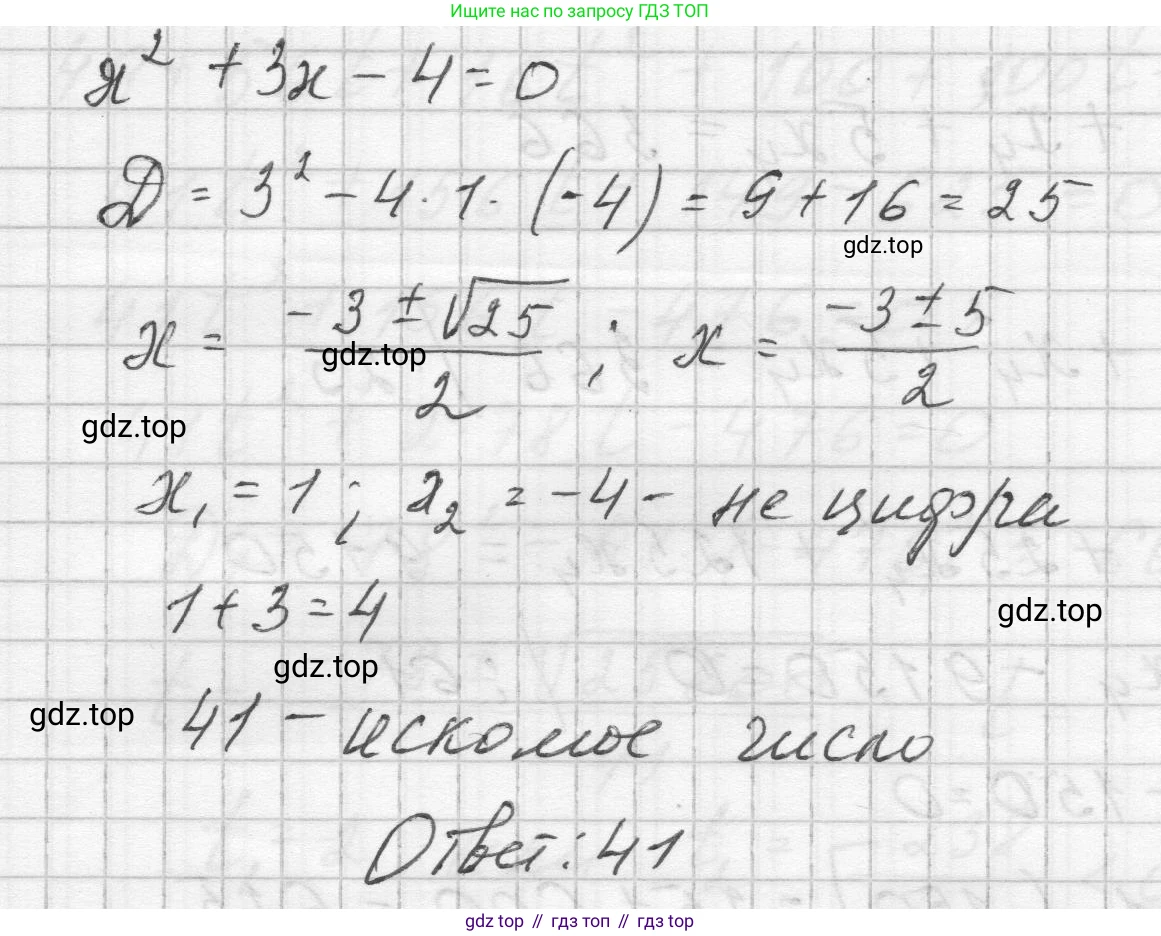 Ищите нас по запросу ГДЗ ТОП
x² + 3x − 4 = 0
Д = 3² − 4 · 1 · (−4) = 9 + 16 = 25
gdz.top
x = (−3 ± √25) / 2 ; x = (−3 ± 5) / 2
gdz.top
gdz.top
x₁ = 1 ; x₂ = −4 − не цифра
1 + 3 = 4
gdz.top
gdz.top
gdz.top
41 − искомое число
Ответ: 41
gdz top // гдз топ // гдз top